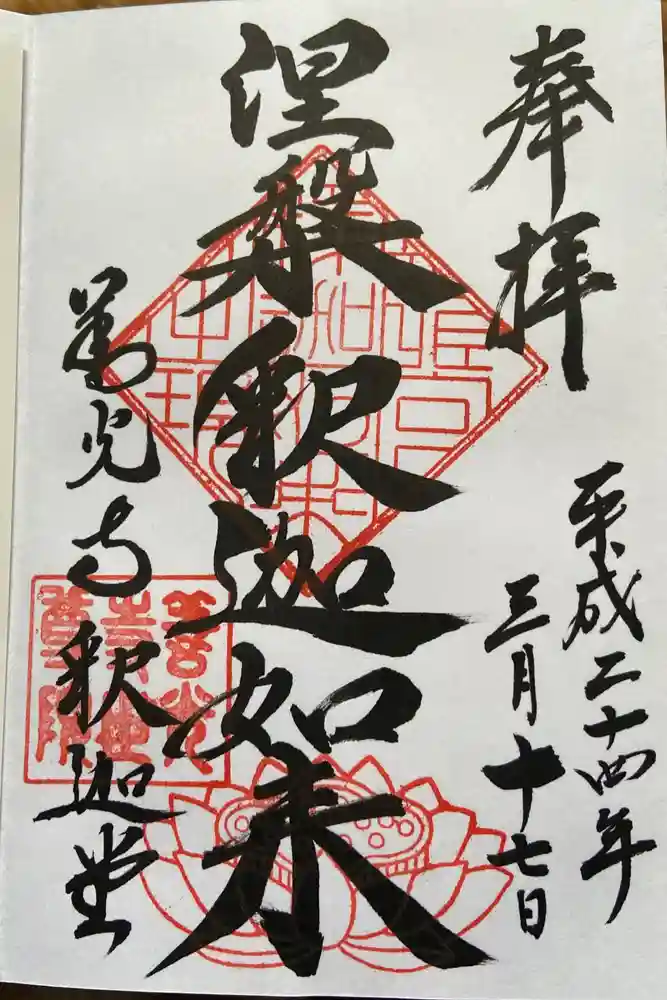 奉拝
平成二十四年
三月十七日
涅槃釈迦如来
善光寺釈迦堂